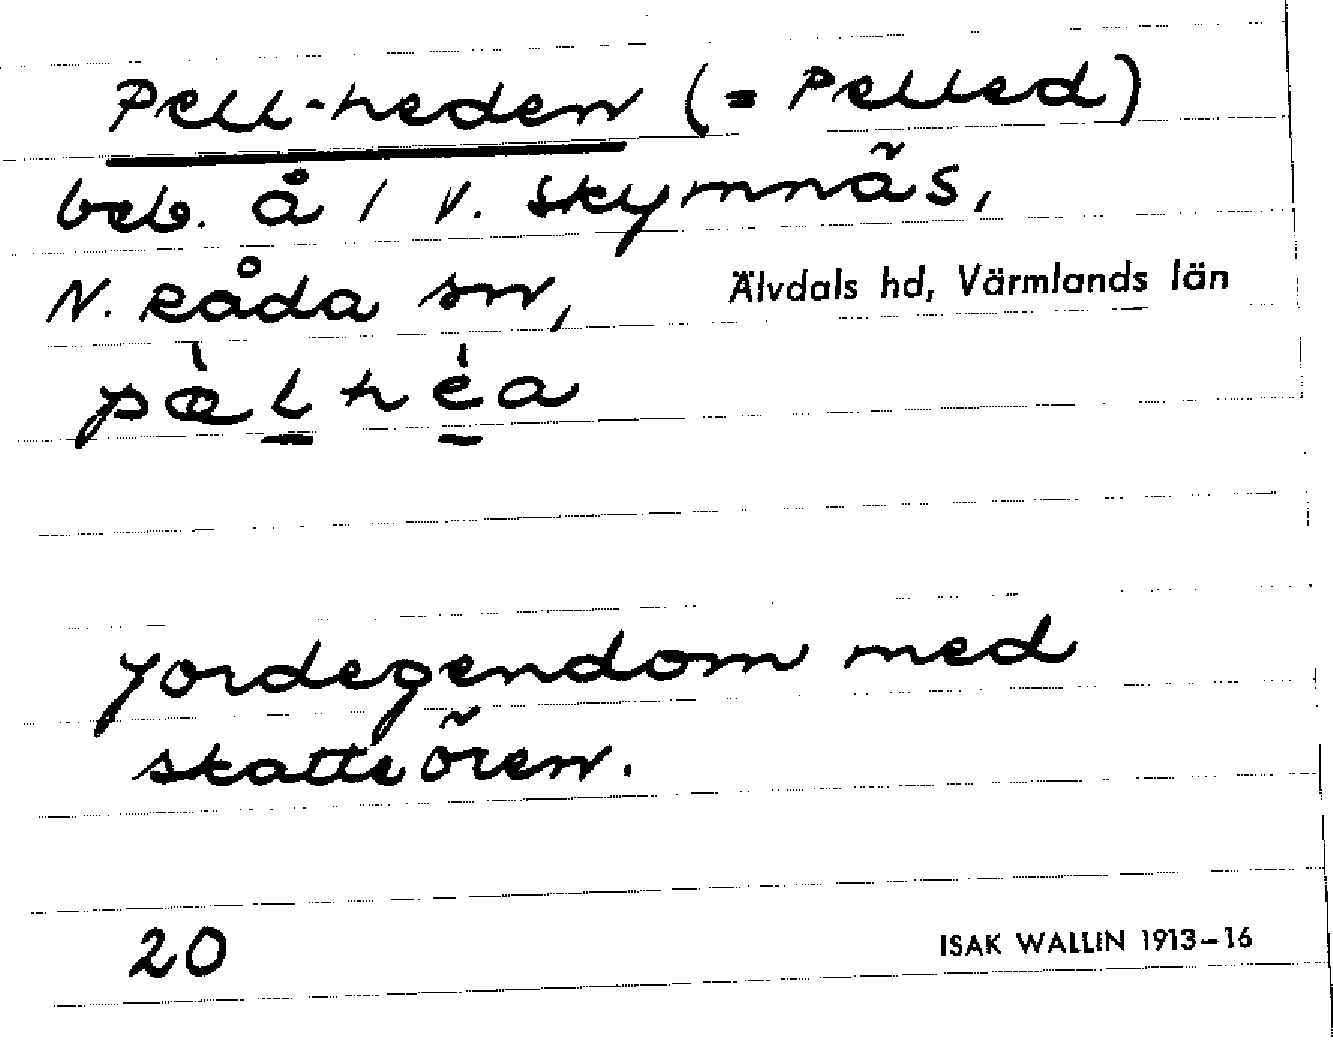 Pell-heden (= Pelled)
beb. å 1 V. Skymnäs,
N. Råda sn, Älvdals hd, Värmlands län
pæ̀lhéa
Jordegendom med
skatteören.
20 ISAK WALLIN 1913-16